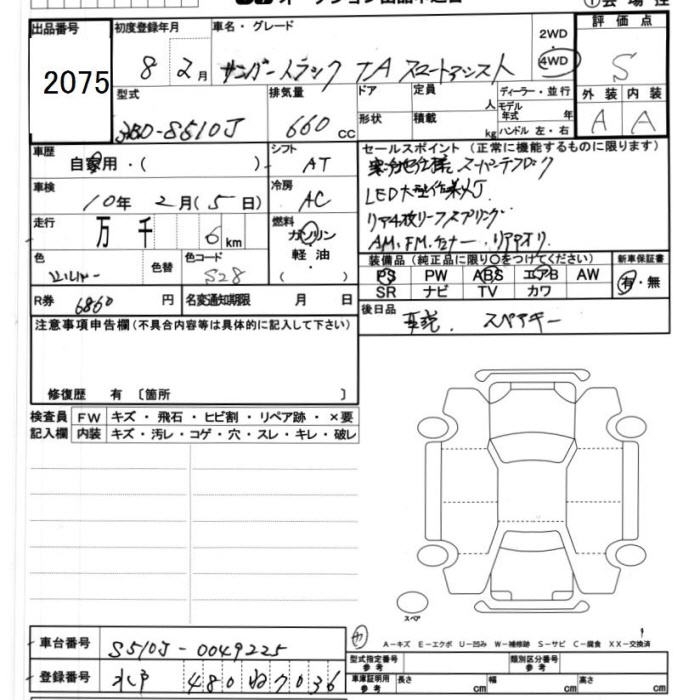 出品番号
2075
初度登録年月
8年2月
車名・グレード
サンバートラック TA スマートアシスト
2WD
4WD
評価点
S
型式
3BD-S510J
排気量
660 cc
ドア
形状
定員 人
積載 kg
ディーラー・並行
モデル年式 年
ハンドル 左・右
外装 内装
A A
車歴
自家用・( )
シフト
AT
セールスポイント(正常に機能するものに限ります)
寒冷地仕様 スーパーデフロック
LED大型作業灯
リア4枚リーフスプリング
AM,FM,
車検
10年 2月(5日)
冷房
AC
走行
万 千 6 km
燃料
ガソリン
軽油
( ・ )
色
シルバー
色替
色コード
S28
装備品(純正品に限り○をつけてください)
PS PW ABS エアB AW
SR ナビ TV カワ
新車保証書
有・無
R券 6860 円
名変通知期限 月 日
後日品
スペアキー
注意事項申告欄(不具合内容等は具体的に記入して下さい)
修復歴 有 〔箇所 〕
検査員記入欄
FW キズ・飛石・ヒビ割・リペア跡・×要
内装 キズ・汚レ・コゲ・穴・スレ・キレ・破レ
スペア
A-キズ E-エクボ U-凹み W-補修跡 S-サビ C-腐食 XX-交換済
車台番号 S510J-0049225
登録番号 水戸 480 ぬ 7036
型式指定番号 参考
類別区分番号 参考
車庫証明用 参考
長さ cm
幅 cm
高さ cm